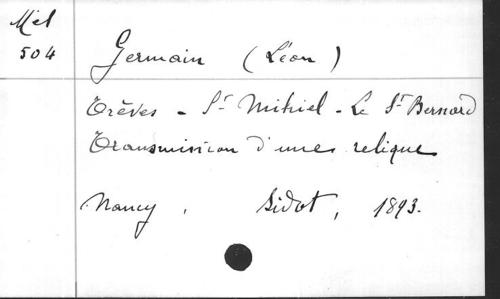 Mél
504
Germain (Léon)
Trêves - St Mihiel - Le St Bernard
Transmission d'une relique
Nancy, Sidot, 1893.